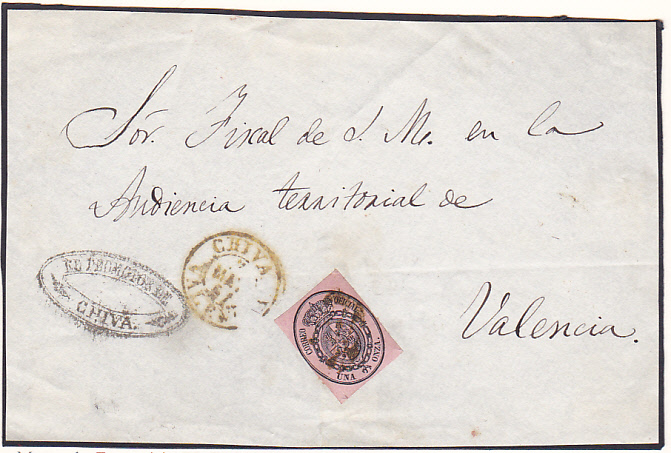 Sõr. Fiscal de S. M. en la
Audiencia territorial de
Valencia.
CHIVA
CHIVA.
CORREO OFICIAL
UNA ONZA.